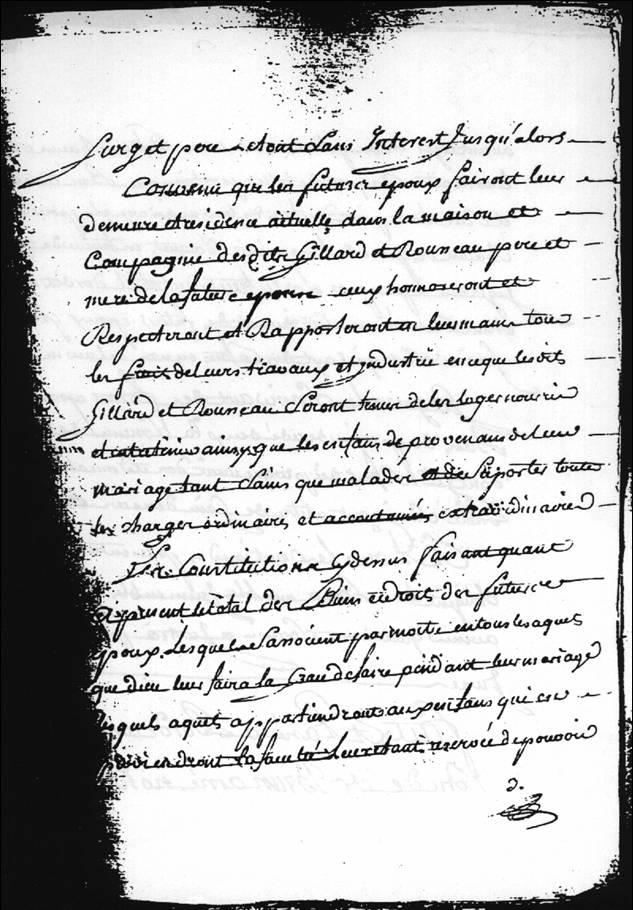 Surget pere et doit Sans Interest Jusqu'alors
Convenu que les futurs epoux fairont leur
demeure et residence actuelle dans la maison et
Compagnie desdits Gillard et Rousseau pere et
mere de la future epouse ceux honnoreront et
Respecteront et Rapporteront en leurs mains tous
les fruits de leurs travaux et jndustrie en ce que lesdits
Gillard et Rousseau Seront tenus de les loger nourir
et entretenir ainsy que les enfans de provenans de leur
mariage tant Sains que malades et de Suportes toute
les charges ordinaires et accoutumés extraordinaires
Les Constitutions Cydessus faisant quant
a present le total des Biens et droits des futurs
epoux. Lesquels Sassocient par moitie en tous les aquets
que dieu leur faira la Grace de faire pendant leur mariage
lesquels aquets appartiendront aux enfans qui en
proviendront la faculté Leur etant reservée de pouvoir
d.